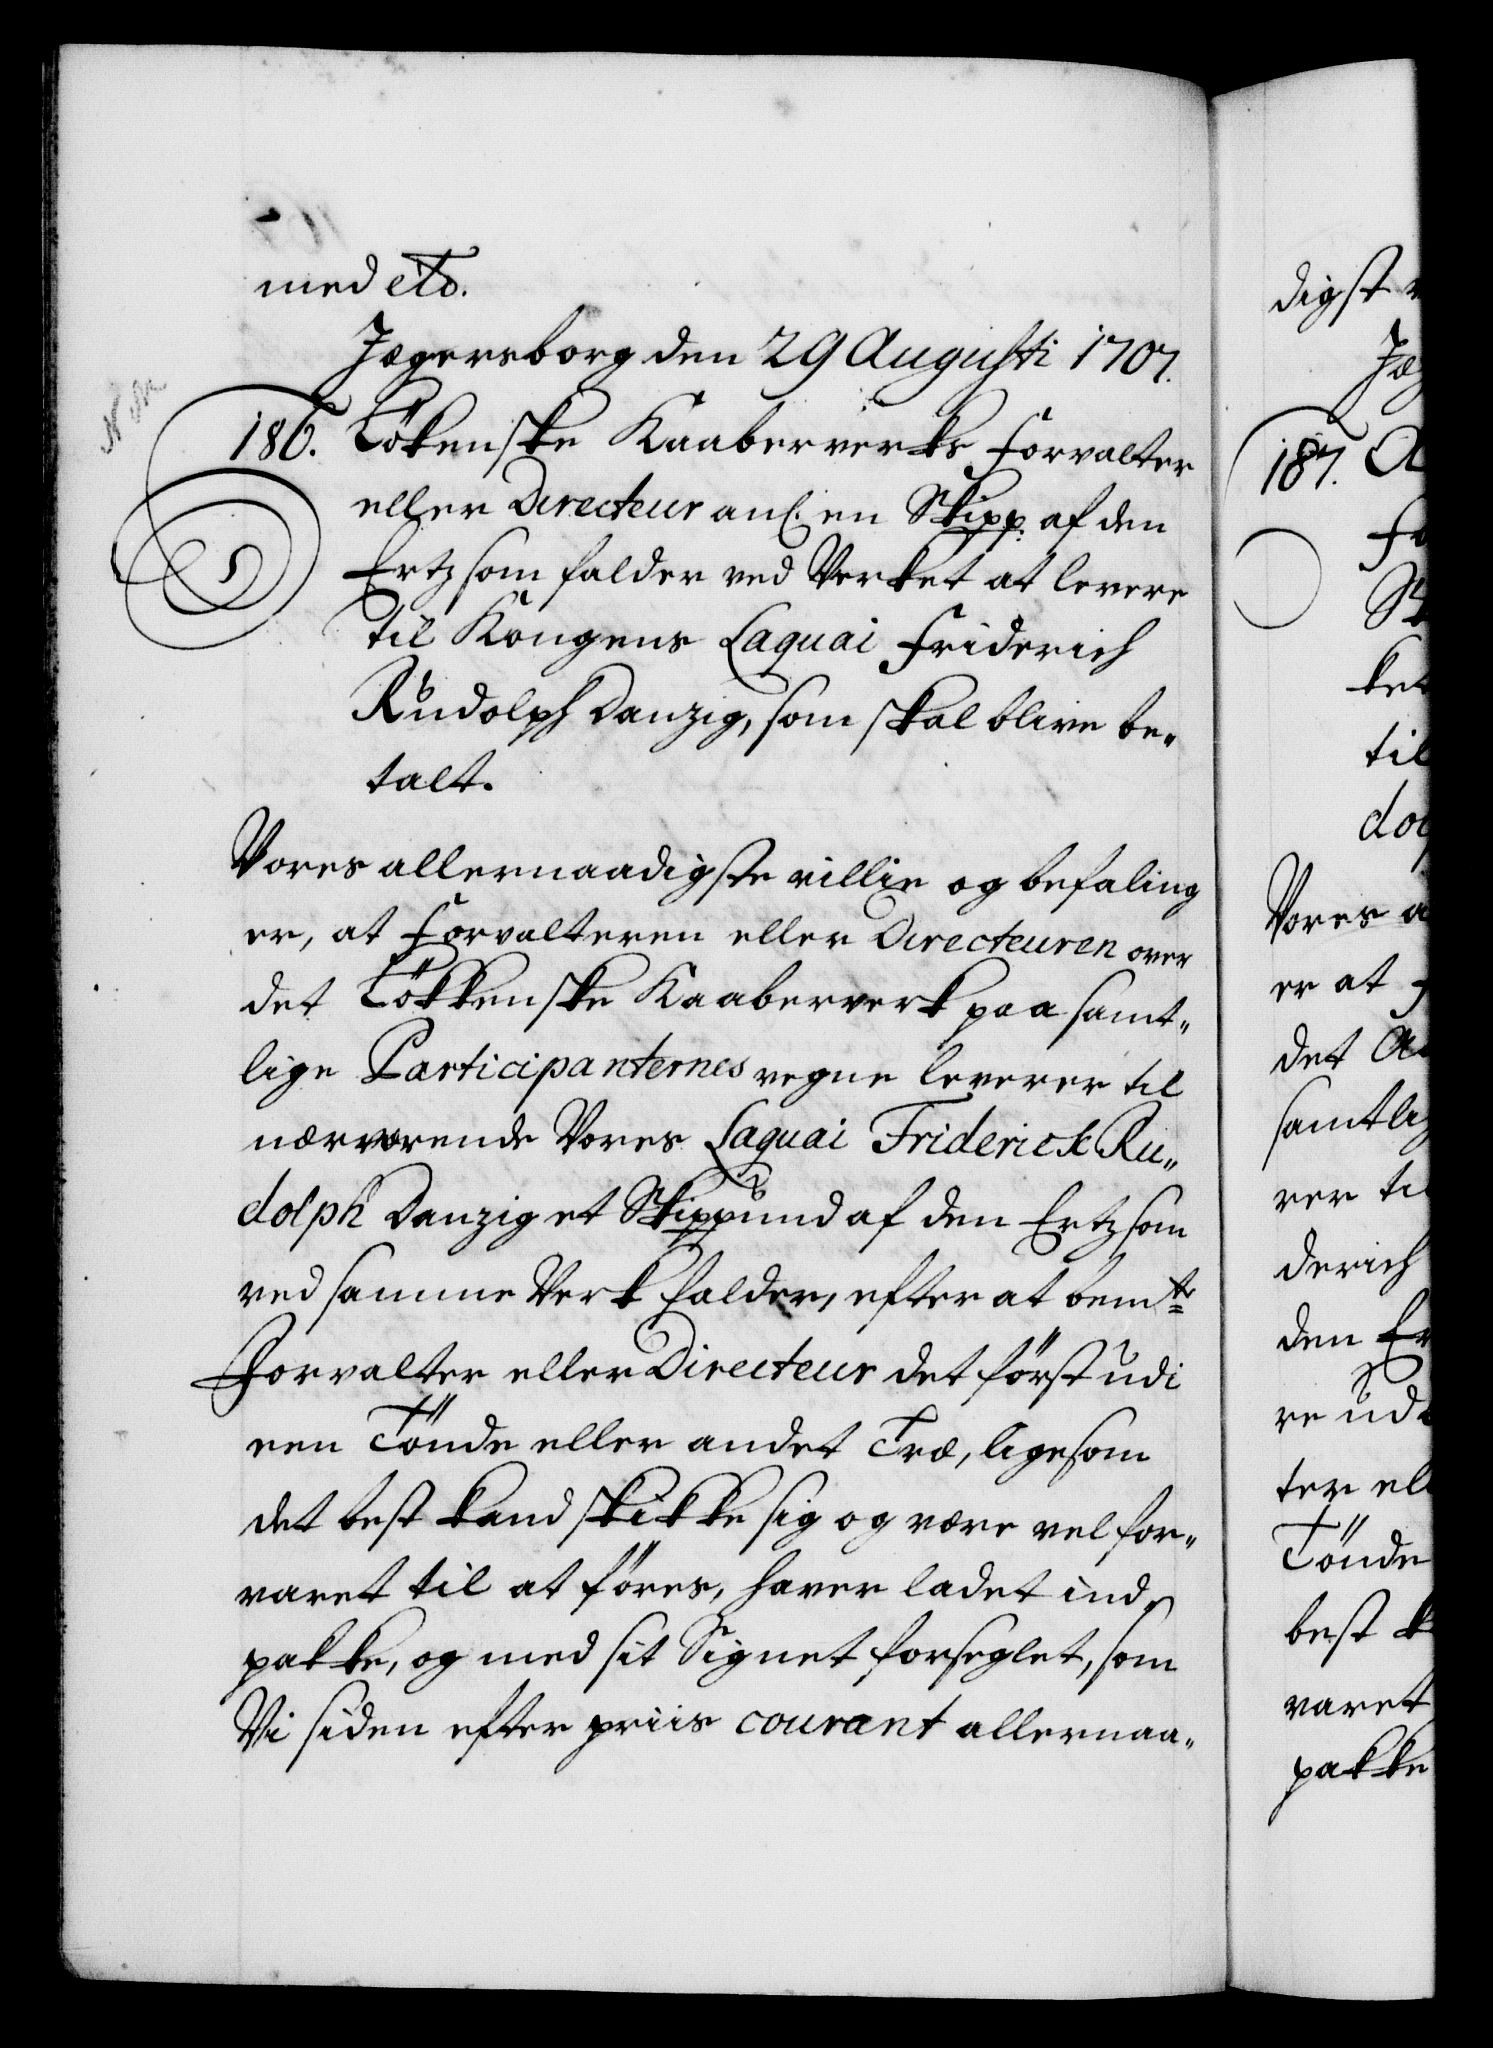 med etc.
Jægersborg den 29 Augusti 1707.
186. Lökenske Kaaberverks Forvalter
eller Directeur anl. en Skipp. af den
Ertz som falder ved Verket at levere
til Kongens Laquai Friderich
Rudolph Danzig, som skal blive be„
talt.
Vores allernaadigste villie og befaling
er, at Forvalteren eller Directeuren over
det Lökkenske Kaaberverk paa samt„
lige Participanternes vegne leverer til
nærværende Vores Laquai Friderick Ru„
dolph Danzig et Skippund af den Ertz som
ved samme Verk falder, efter at bemte
Forvalter eller Directeur det först udi
een Tönde eller andet Træ, ligesom
det best kand skikke sig og være vel for„
varet til at föres, haver ladet ind
pakke, og med sit Signet forseglet, som
Vi siden efter priis courant allernaa„
digst
187.
ket
til
Vores a
er at
det
samtlig
rer til
derich
den Er
re ud
ter ell
Tönde
best k
varet
pakke